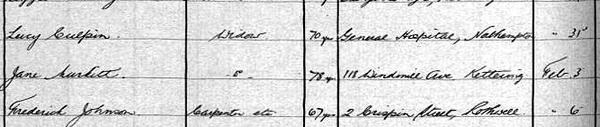 Lucy Culpin. Widow 70 yrs General Hospital, Northampton " 31
Jane Murkett. " 78 yrs 118 Windmill Ave Kettering Feb. 3
Frederick Johnson Carpenter etc 67 yrs 2 Crispin Street, Rothwell " 6